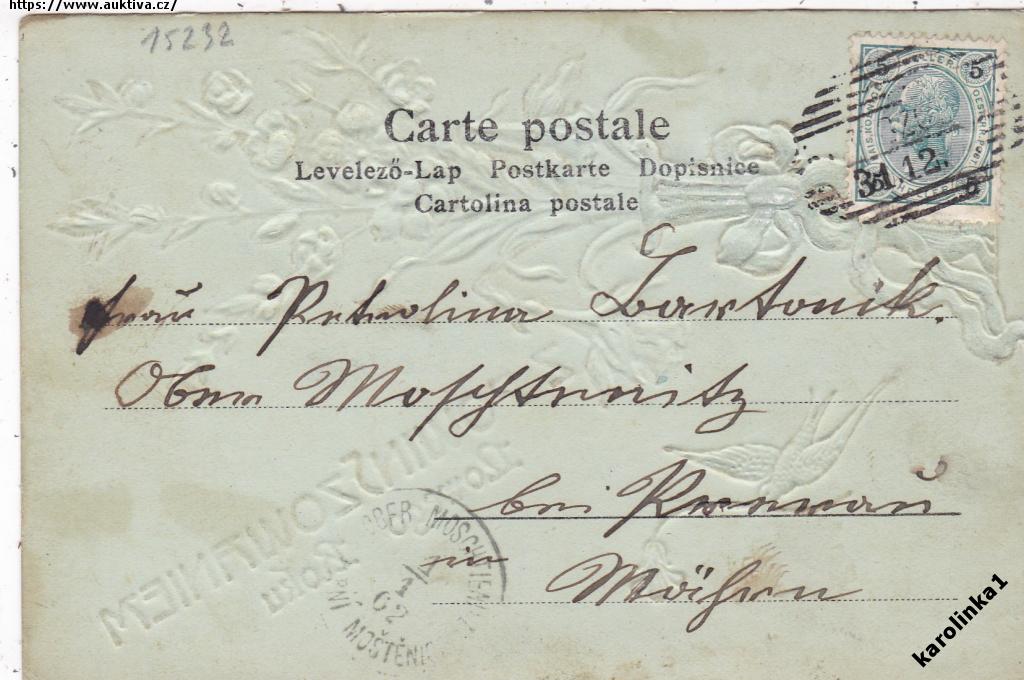 https://www.auktiva.cz/
15232
Carte postale
Levelező-Lap Postkarte Dopisnice
Cartolina postale
5 5
31.12.
5
Frau Petrolina Bartonik.
Ober Moschtienitz
bei Prerau
in Mähren
OBER MOSCHTIEN
1/1
02
MOŠTĚNI
karolinka1